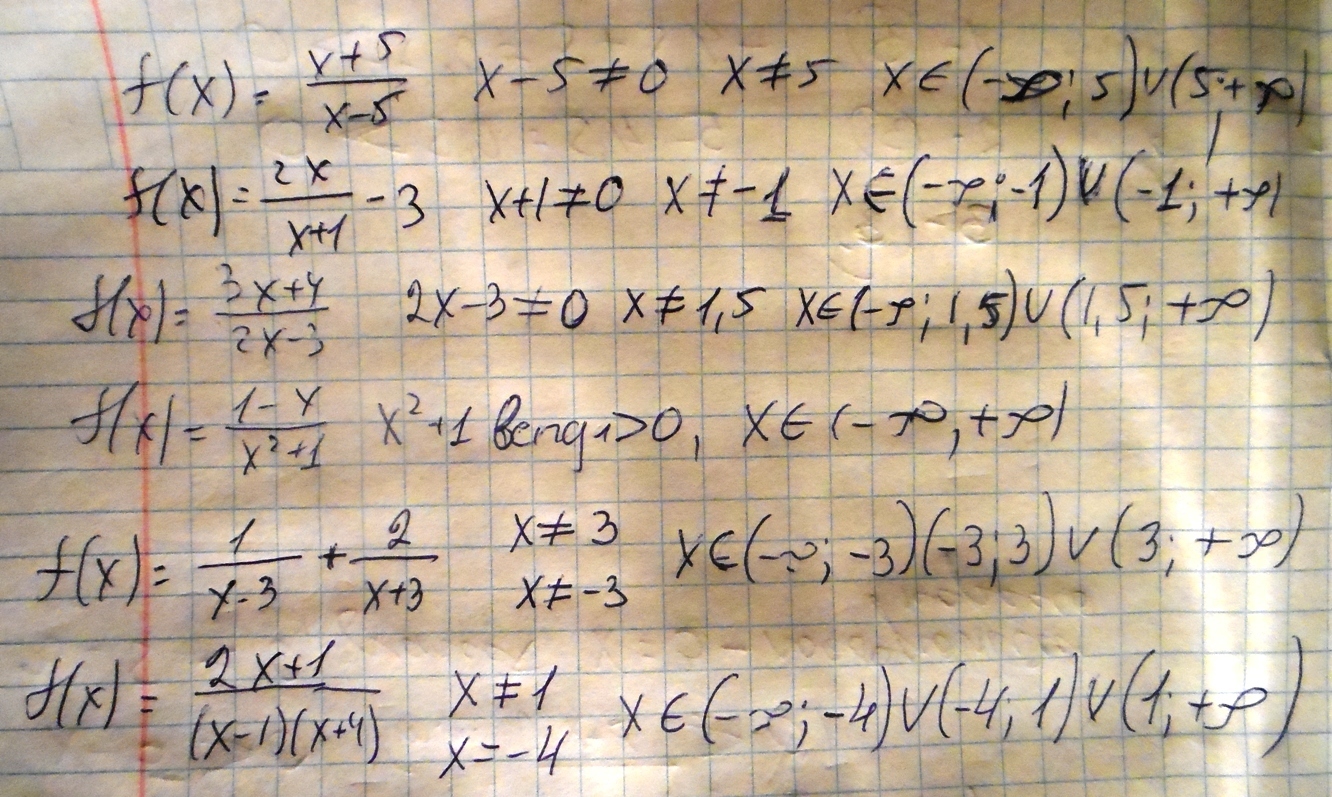 f(x) = (x+5)/(x-5) x-5≠0 x≠5 x∈(-∞; 5)∪(5;+∞)
f(x) = 2x/(x+1) - 3 x+1≠0 x≠-1 x∈(-∞;-1)∪(-1; +∞)
f(x) = (3x+4)/(2x-3) 2x-3≠0 x≠1,5 x∈(-∞; 1,5)∪(1,5; +∞)
f(x) = (1-x)/(x²+1) x²+1 всегда>0, x∈(-∞,+∞)
f(x) = 1/(x-3) + 2/(x+3) x≠3 x≠-3 x∈(-∞; -3)(-3;3)∪(3; +∞)
f(x) = (2x+1)/((x-1)(x+4)) x≠1 x=-4 x∈(-∞; -4)∪(-4; 1)∪(1; +∞)